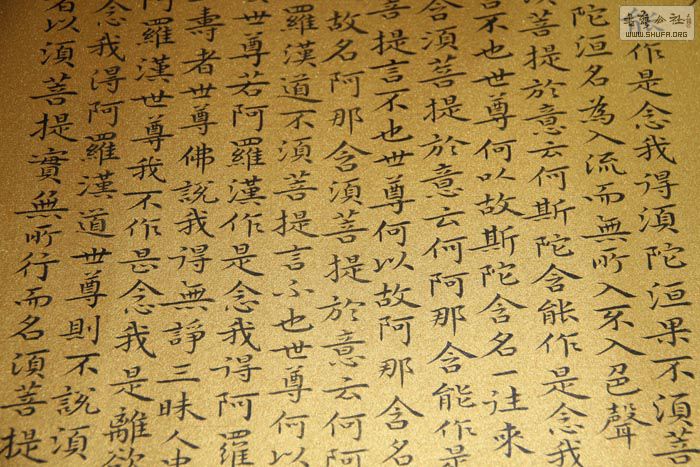 作是念我得須陀洹果不須菩
陀洹名為入流而無所入不入色聲
須菩提於意云何斯陀含能作是念我
言不也世尊何以故斯陀含名一往来
含須菩提於意云何阿那含能作是
菩提言不也世尊何以故阿那含名
故名阿那含須菩提於意云何阿
羅漢道不須菩提言不也世尊何以
世尊若阿羅漢作是念我得阿羅
壽者世尊佛說我得無諍三昧人中
阿羅漢世尊我不作是念我是離欲
念我得阿羅漢道世尊則不說須
者以須菩提實無所行而名須菩提
WWW.SHUFA.ORG